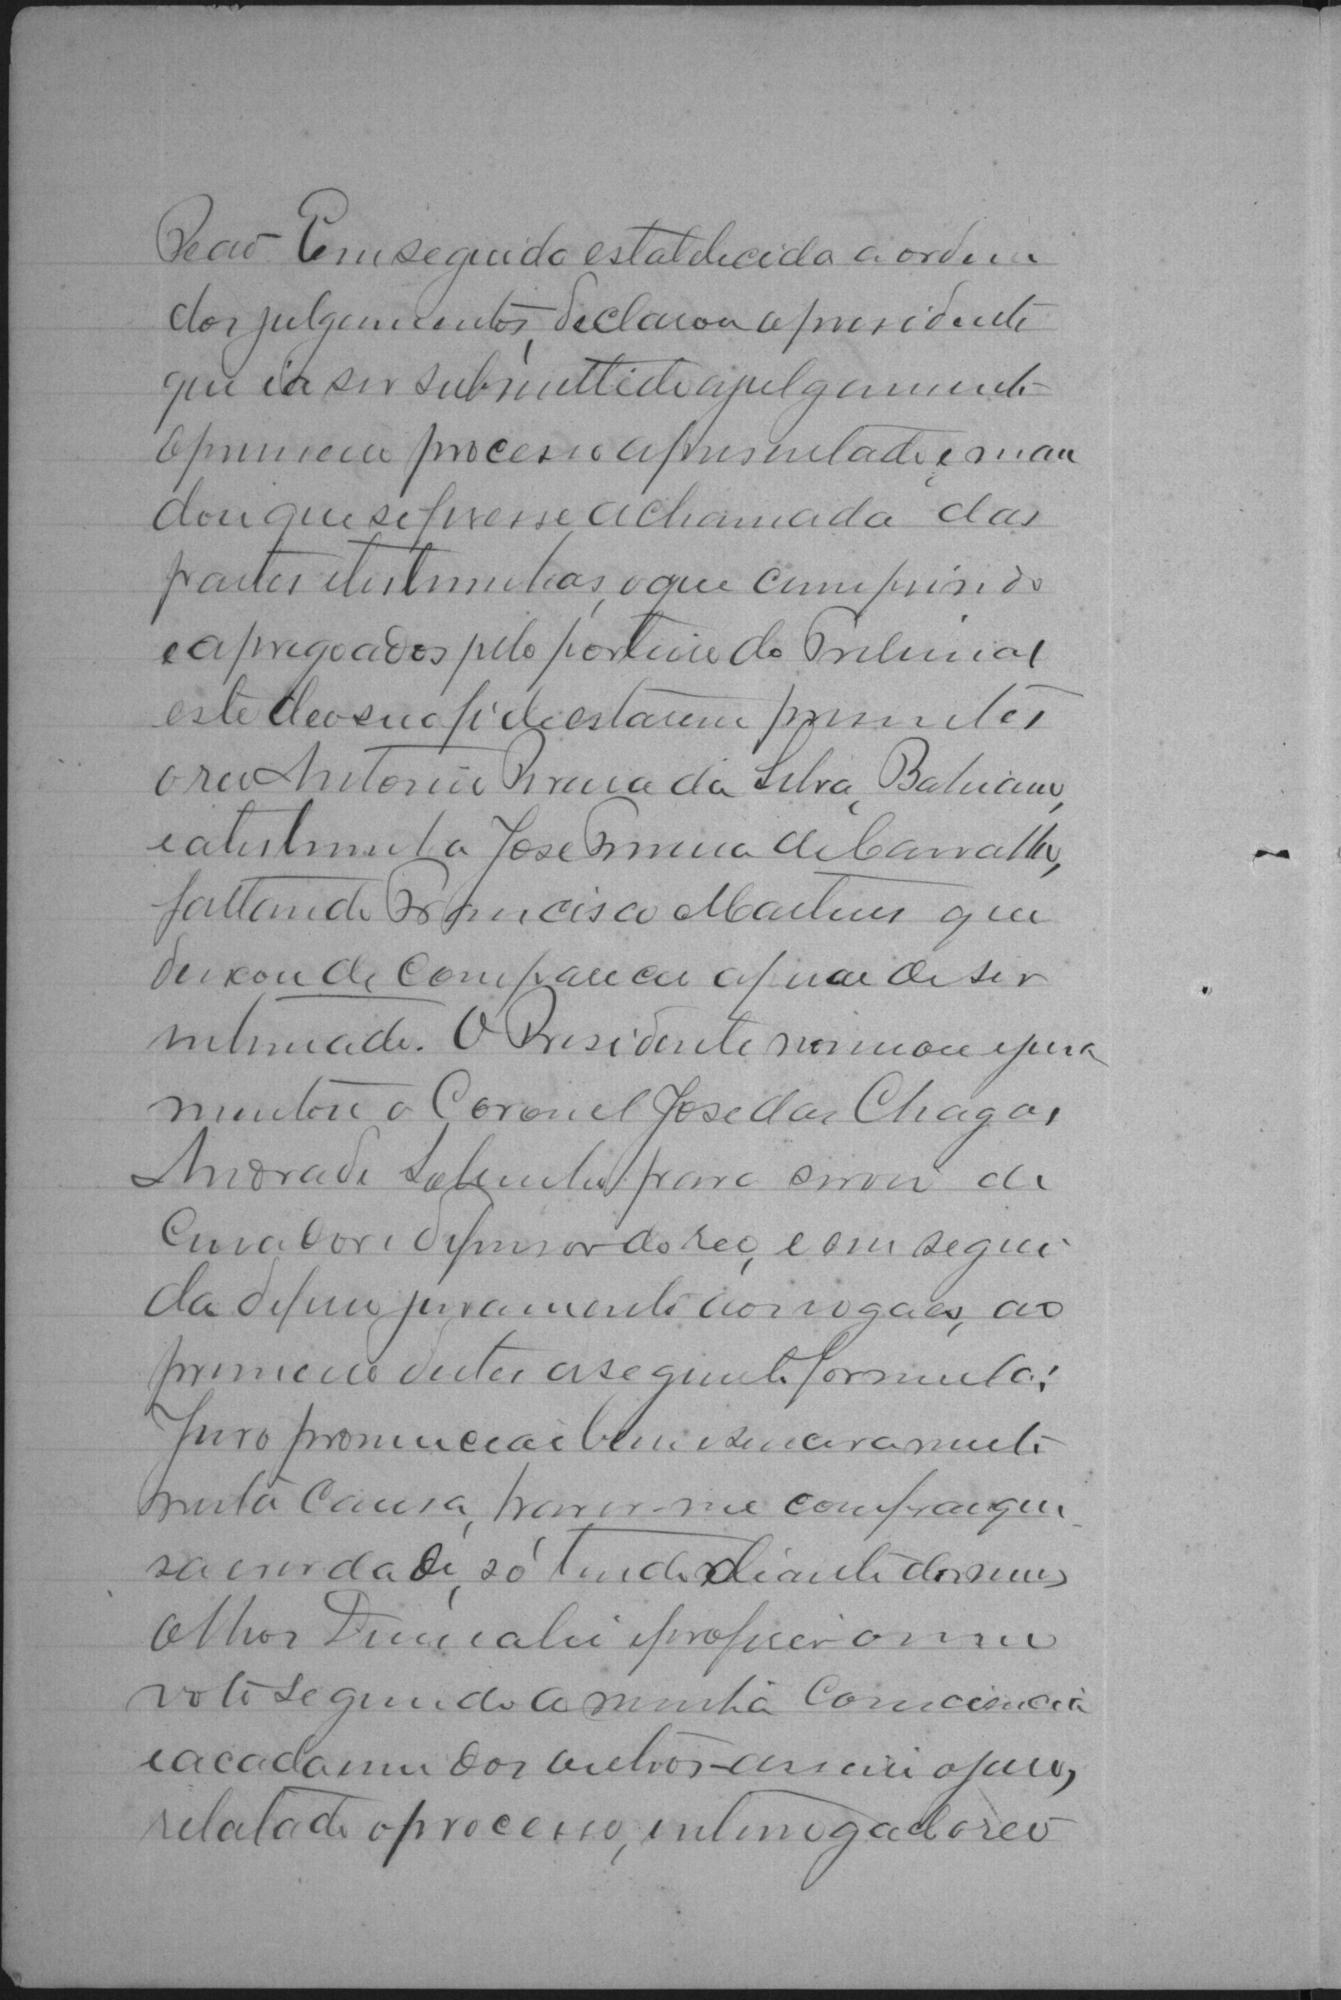 Em seguida estabelecida a ordem
dos julgamentos, declarou o presidente
que ia ser submettido a julgamento
o primeiro processo apresentado, e man
dou que se fisesse a chamada das
partes e testemunhas, o que cumprindo
e apregoados pelo porteiro do Tribunal
este deo sua fé de estarem presentes
o reo Antonio Pereira da Silva, Bahiano,
e a testemunha José Pereira de Carvalho,
faltando Francisco Martins que
deixou de comparecer apezar de ser
intimado. O Presidente nomeou e jura
mentou o Coronel José das Chagas
Andrade Sobrinho para servir de
Curador e defensor do reo, e em segui
da deferio juramento aos vogaes, ao
primeiro destes a seguinte formula:
Juro pronunciar bem e sinceramente
nesta causa, haver-me com franque
sa e verdade, só tendo diante dos meus
olhos Deus e a lei e proferir o meu
voto segundo a minha consciencia
e a cada um dos outros - assim o juro,
relatado o processo, interrogado o reo